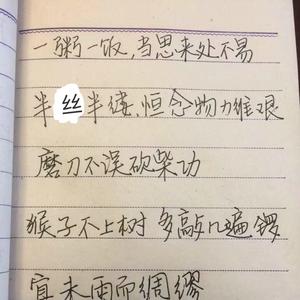 一粥一饭,当思来处不易
半丝半缕,恒念物力维艰
磨刀不误砍柴功
猴子不上树 多敲几遍锣
宜未雨而绸缪